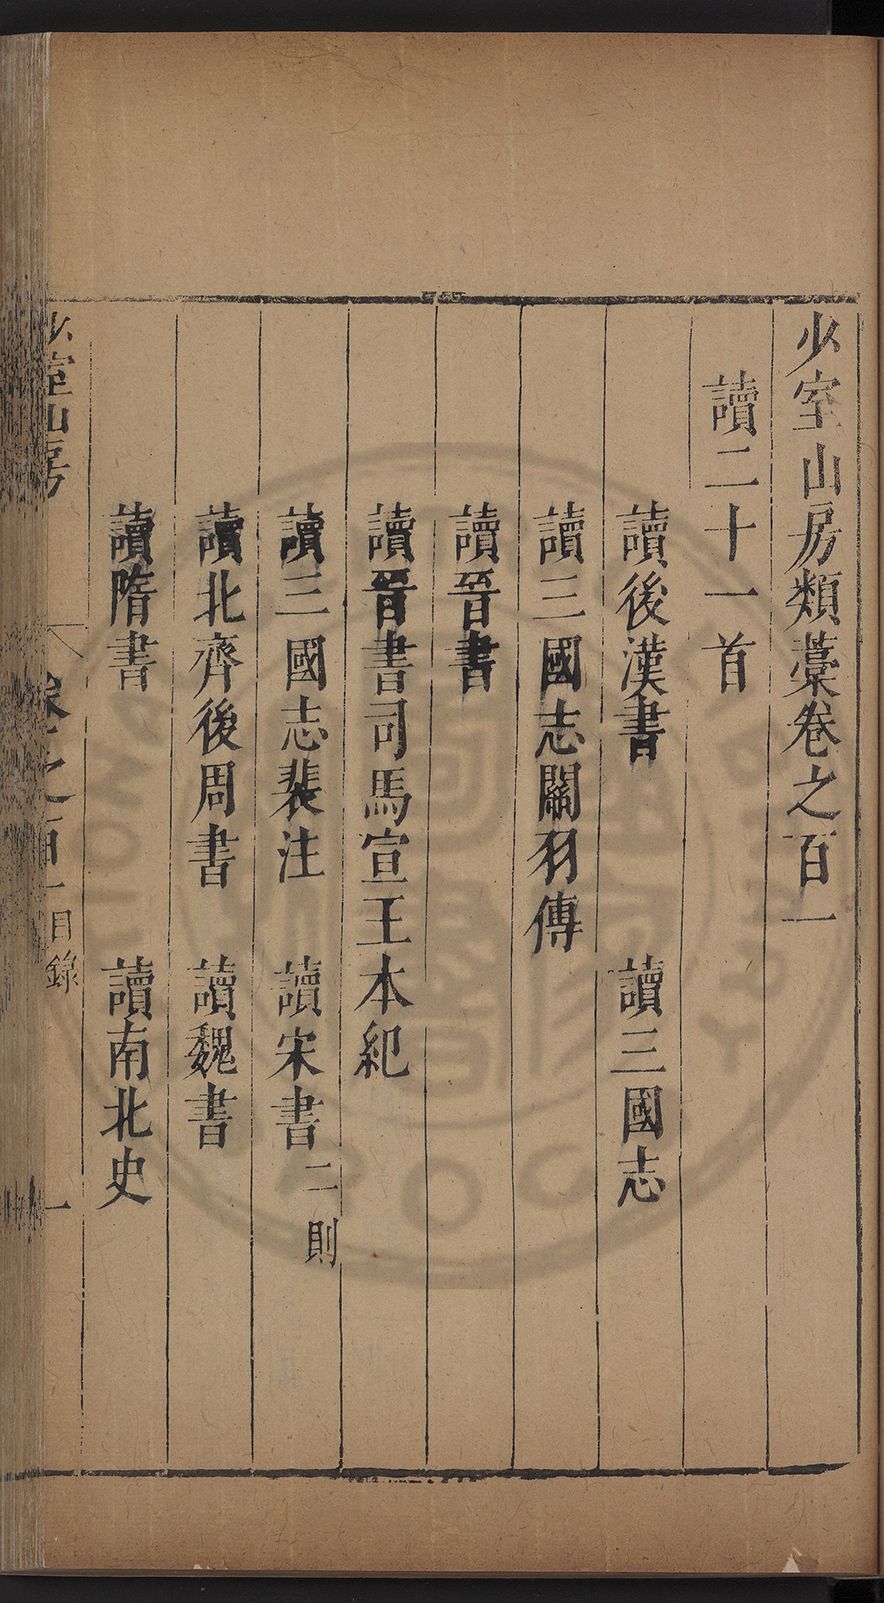 少室山房類藁卷之百一
讀二十一首
讀後漢書 讀三國志
讀三國志關羽傳
讀晉書
讀晉書司馬宣王本紀
讀三國志裴注 讀宋書二則
讀北齊後周書 讀魏書
讀隋書 讀南北史
少室山房 卷之百一目錄 一